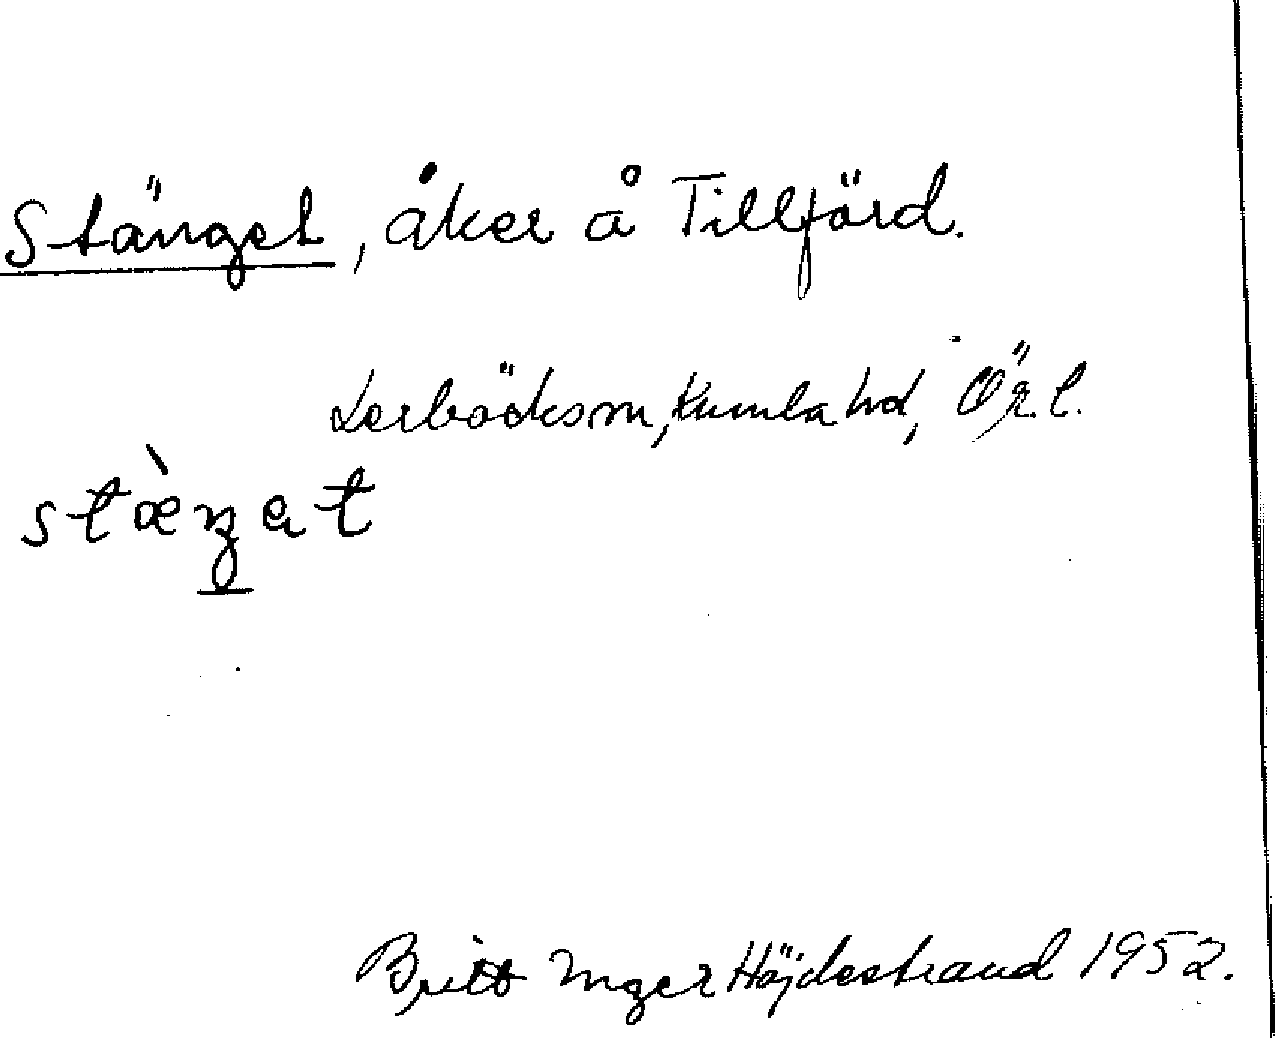 Stänget, åker å Tillförd.
Lerbäcks sn, Kumla hd, Ör. l.
stæ̀ŋət
Britt Inger Höjdestrand 1952.